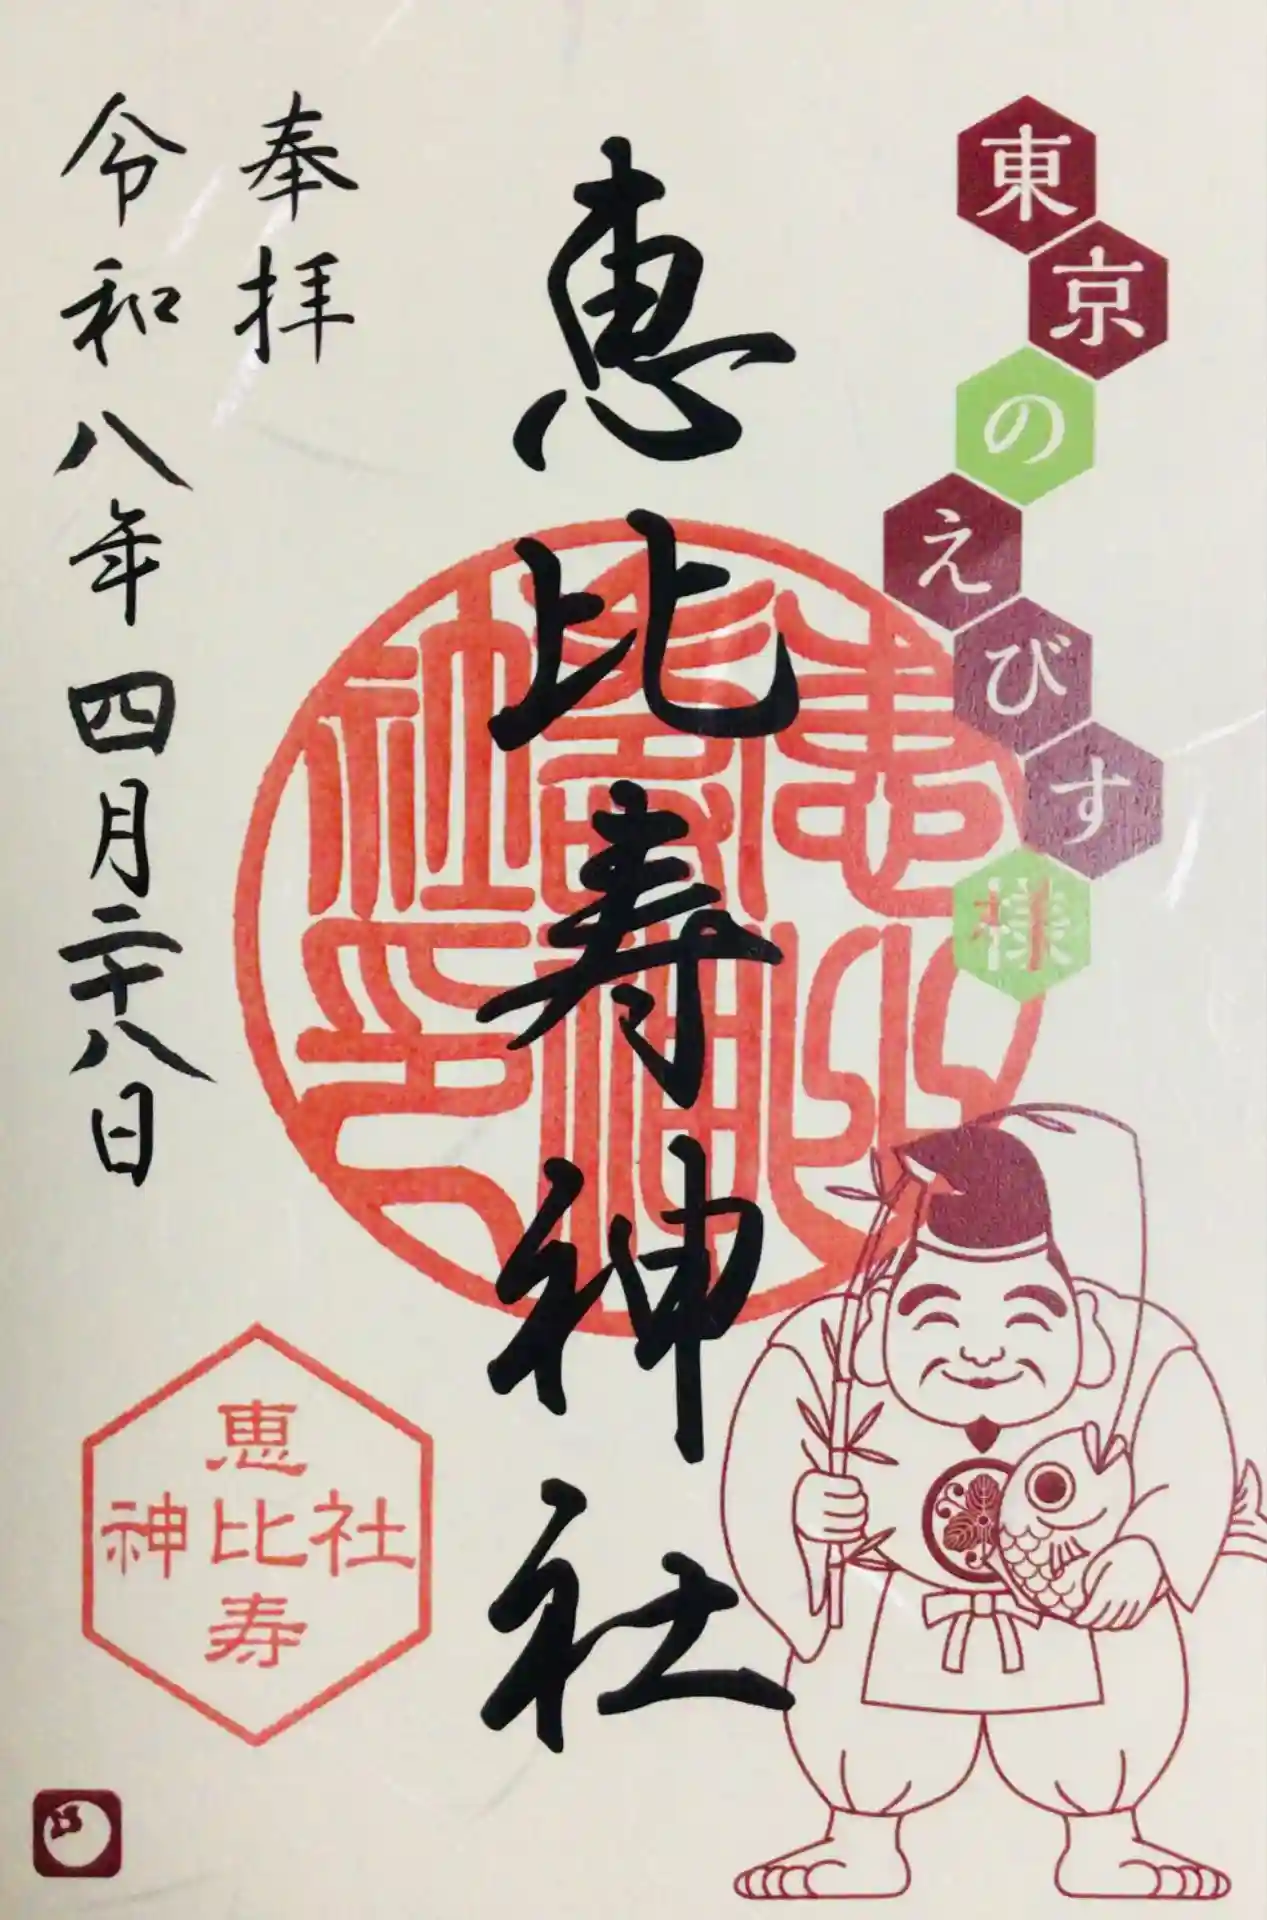 東京のえびす様
恵比寿神社
奉拝
令和八年四月二十八日
恵比寿
神社
恵比寿神社印